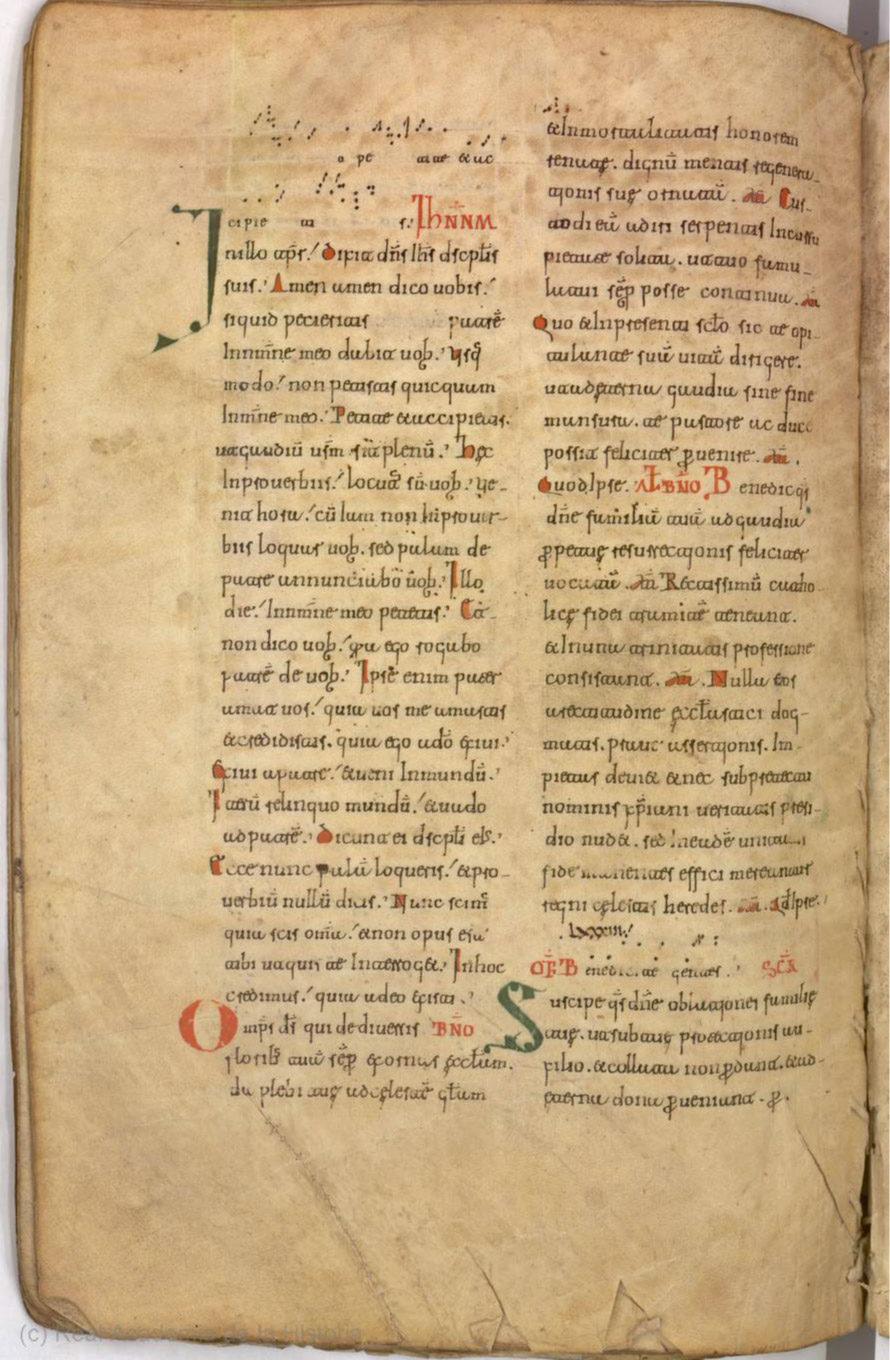 a pe tite & ac
cipie ti s.' IhNNM
In illo tp̅s.' Dixit dn̅s Ih̅s dscpl̅is
suis.' Amen amen dico uobis.'
siquid petieritis patre̅
Innm̅ne meo dabit uob.' Vsq̅
modo.' non petistis quicquam
Innm̅ne meo.' Petite & accipietis.
ut gaudiu̅ usm̅ sit plenu̅.' Hec
Inprouerbiis.' locut᷒ su̅ uob.' Ue-
nit hora.' cu̅ iam non Inprouer-
biis loquar uob. sed palam de
patre annunciabo uob.' Illo
die.' Innm̅ne meo petetis.' Et
non dico uob.' quia ego rogabo
patre̅ de uob.' Ipse enim pater
amat uos.' quia uos me amastis
& credidistis. quia ego ado̅ exiui.'
Exiui apatre.' & ueni Inmundu̅.'
Iteru̅ relinquo mundu̅.' & uado
adpatre̅.' Dicunt ei dscpl̅i eis.'
Ecce nunc palam loqueris.' & pro-
uerbiu̅ nullu̅ dicis.' Nunc scim᷒
quia scis omia.' & non opus est
tibi ut quis te Interrog&.' Inhoc
credimus.' quia adeo existi.'
Omps ds̅ qui dediuersis BN̅O
floribus tuam semp̅ exornas eccl̅am.
da plebi tue adcelestem
& Inmortalitatis honorem
tenuae. dignu̅ mentis regenera-
tionis sue ornatu̅. Am̅ Cus-
todi eu̅ adiri serpentis Incursu
pietate solita. ut tuo famu-
latui sep̅ posse continuu. Am̅
Quo & Inpresenti sclo̅ sic te opi-
tulante suu̅ uitam dirigere.
ut ad eterna gaudia sine fine
mansura. te pastore ac duce
possit feliciter p̱uenire. Am̅.
Quod Ipse. ALBNO Benedic qs̅
dne̅ familiam tuam adgaudia
p̱petue resurrectionis feliciter
uocatu̅. Am̅ Rectissimu̅ catho-
lice fidei teneant.
& Inuna trinitatis professione
consistant. Am̅. Nulla eos
arectitudine ecclesiastici dog-
matis. praue assertionis. Im-
pietas deui& & nec subpretextu
nominis xpiani ueritatis presi-
dio nud&. sed Ineade̅
fide manentes effici mereantur
regni celestis heredes. Am̅. Qd̅ Ipse.
LXXXIII.
OF̅. Benedicite gentes. SCR̅
Suscipe qs̅ dne̅ oblationes familie
tue. ut subtue protectionis au-
xilio. & collata non p̱dant. & ad
eterna dona p̱ueniant. p̱.